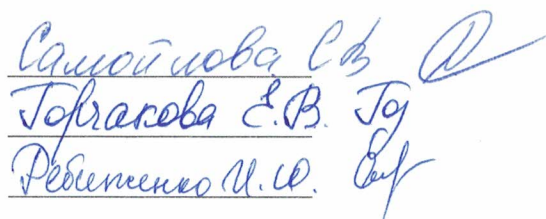 Самойлова С В
Горчакова Е.В. Го
Ребиженко И.Ю.